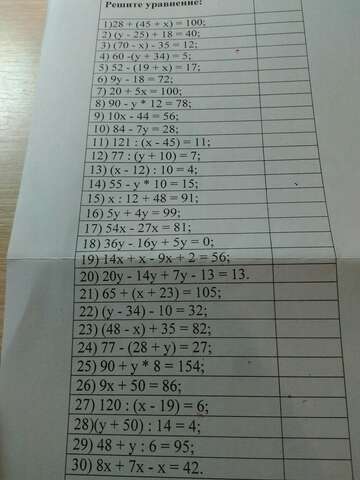 Решите уравнение:
1)28 + (45 + x) = 100;
2) (y - 25) + 18 = 40;
3) (70 - x) - 35 = 12;
4) 60 -(y + 34) = 5;
5) 52 - (19 + x) = 17;
6) 9y - 18 = 72;
7) 20 + 5x = 100;
8) 90 - y * 12 = 78;
9) 10x - 44 = 56;
10) 84 - 7y = 28;
11) 121 : (x - 45) = 11;
12) 77 : (y + 10) = 7;
13) (x - 12) : 10 = 4;
14) 55 - y * 10 = 15;
15) x : 12 + 48 = 91;
16) 5y + 4y = 99;
17) 54x - 27x = 81;
18) 36y - 16y + 5y = 0;
19) 14x + x - 9x + 2 = 56;
20) 20y - 14y + 7y - 13 = 13.
21) 65 + (x + 23) = 105;
22) (y - 34) - 10 = 32;
23) (48 - x) + 35 = 82;
24) 77 - (28 + y) = 27;
25) 90 + y * 8 = 154;
26) 9x + 50 = 86;
27) 120 : (x - 19) = 6;
28)(y + 50) : 14 = 4;
29) 48 + y : 6 = 95;
30) 8x + 7x - x = 42.